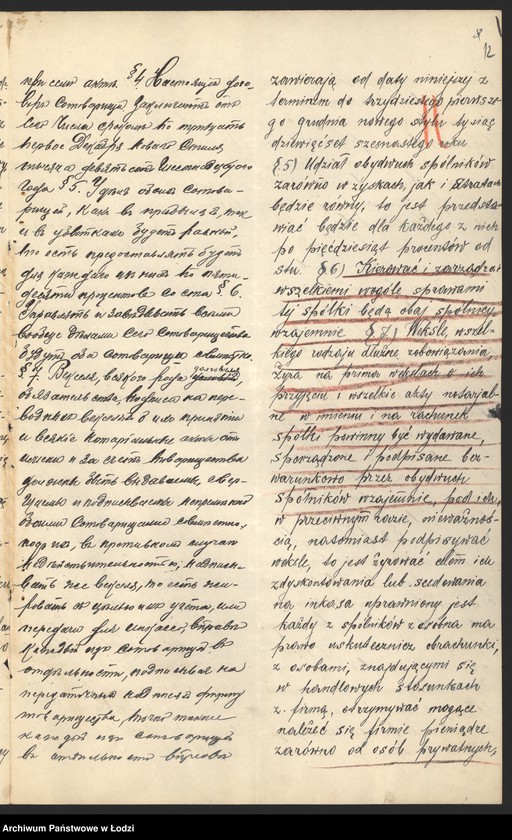 12
при семъ актѣ. § 4. Настоящій дого-
воръ Товарищи заключаютъ отъ
сего числа срокомъ по тридцать
первое Декабря новаго стиля
тысяча девятьсотъ
года § 5. Участіе обоихъ Товари-
щей, какъ въ прибыляхъ, такъ
и въ убыткахъ будетъ равное,
то есть представлять будетъ
для каждаго изъ нихъ по пяти-
десяти процентовъ со ста § 6.
Управлять и завѣдывать всѣми
вообще дѣлами сего Товарищества
будутъ оба Товарища совмѣстно
§ 7. Векселя, всякаго рода долговыя
обязательства, надписи на пере-
водныхъ векселяхъ и ихъ принятіе
и всякіе нотаріальные акты отъ
имени и за счетъ товарищества
должны быть выдаваемы, совер-
шаемы и подписываемы непремѣнно
обоими Товарищами совмѣстно,
подъ въ противномъ случаѣ
недѣйствительности, надписы-
вать же векселя, то есть жи-
ровать съ цѣлью ихъ учета, или
передачи для инкассо, вправѣ
каждый изъ Товарищей въ
отдѣльности, подписывая на
передаточныхъ надписяхъ фирму
товарищества, точно также
каждый изъ товарищей
въ отдѣльности вправѣ
zawierają od daty niniejszej z
terminem do trzydziestego pierwsze-
go grudnia nowego stylu tysiąc
dziewięćset szesnastego roku.
§ 5) Udział obydwuch spólników
zarówno w zyskach, jak i stratach
będzie równy, to jest przedsta-
wiać będzie dla każdego z nich
po pięćdziesiąt procentów od
stu. § 6) Kierować i zarządzać
wszelkiemi wogóle sprawami
tej spółki będą obaj spólnicy
wzajemnie § 7) Weksle, wszel-
kiego rodzaju dłużne zobowiązania,
żyra na prima wekslach o ich
przyjęciu i wszelkie akty notarjal-
ne w imieniu i na rachunek
spółki powinny być wydawane,
sporządzone i podpisane bez-
warunkowo przez obydwuch
spólników wzajemnie, pod ich,
w przeciwnym razie, nieważnoś-
cią, natomiast podpisywać
weksle, to jest żyrować celem ich
zdyskontowania lub scedowania
na inkaso uprawniony jest
każdy z spólników z osobna ma
prawo uskuteczniać obrachunki,
z osobami, znajdującymi się
w handlowych stosunkach
z firmą, otrzymywać mogące
należeć się firmie pieniądze
zarówno od osób prywatnych,
Archiwum Państwowe w Łodzi